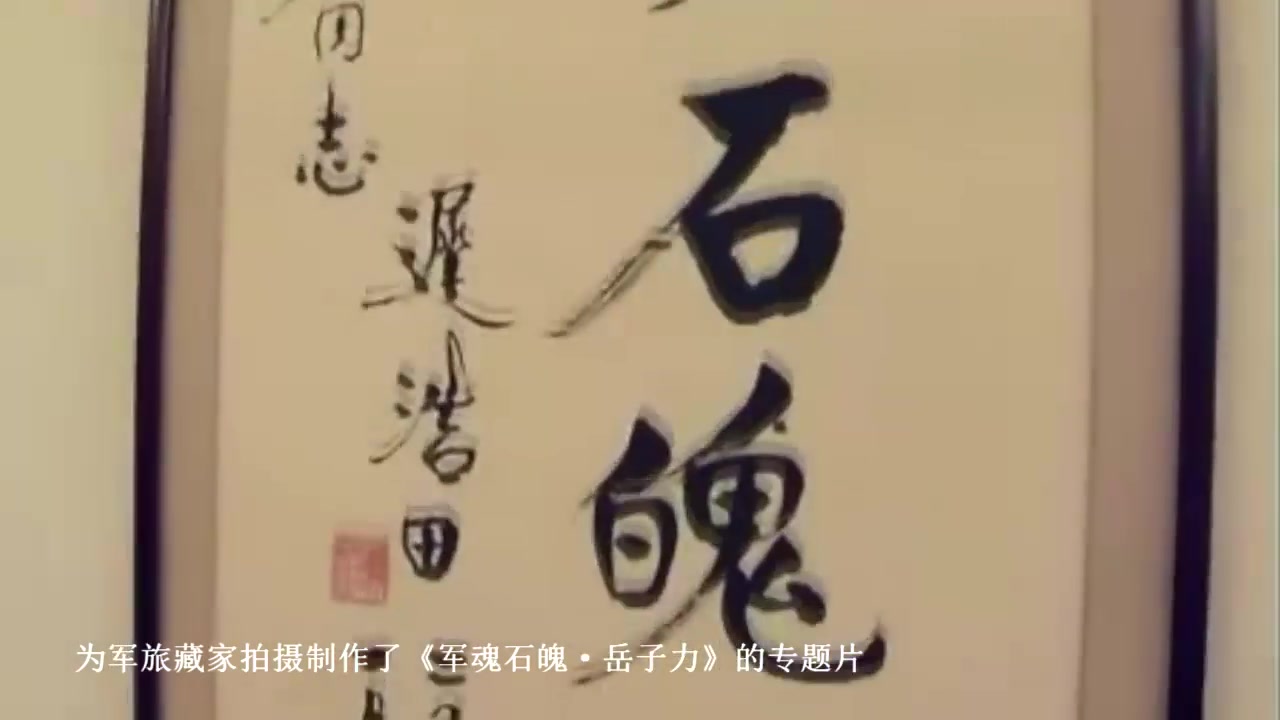 石魄
同志
遲浩田
为军旅藏家拍摄制作了《军魂石魄·岳子力》的专题片